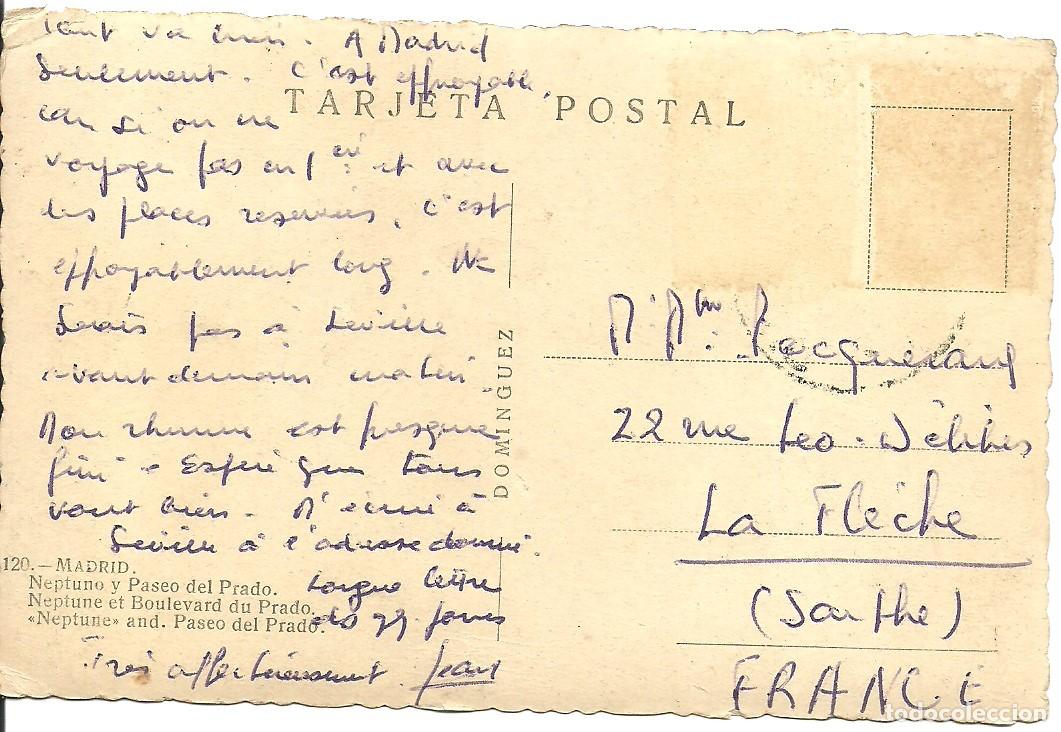 Tout va bien. A Madrid
seulement. C'est effroyable,
TARJETA POSTAL
car si on ne
voyage pas en 1ère et avec
des places reservées, c'est
effroyablement long. Ne
serais pas à Seville
avant demain matin
Mon rhume est presque
fini. Espère que tous
vont bien. M'écrire à
Seville à l'adresse donnée.
Longue lettre
dès jours
Très affectueusement Jean
DOMINGUEZ
120.—MADRID.
Neptuno y Paseo del Prado.
Neptune et Boulevard du Prado.
«Neptune» and. Paseo del Prado.
M. Mme
22 rue Leo-Delibes
La Flèche
(Sarthe)
FRANCE
todocoleccion